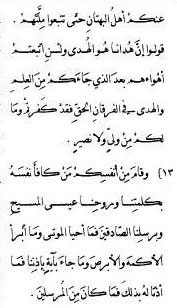 عنكم أهل البهتان حتى تتبعوا ملتهم.
قولوا إن هدانا هو الهدى ولئن اتبعتم
أهواءهم بعد الذي جاءكم من العلم
والهدى في الفرقان الحق فقد كفرتم وما
لكم من ولي ولا نصير.
١٣) وقام من أنفسكم من كافأ نفسه
بكلمتنا وروحنا عيسى المسيح
وبرسلنا الصادقين فما أحيا الموتى وما أبرأ
الأكمه والأبرص وما جاء بآية بإذننا فما
أذنا له بذلك فما كان من المرسلين.